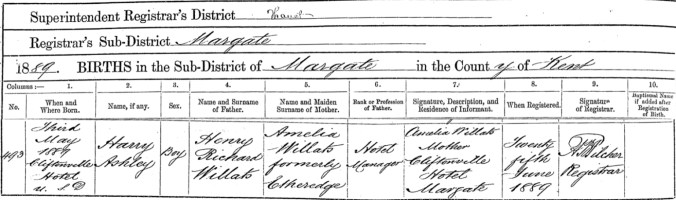 Superintendent Registrar's District Thanet
Registrar's Sub-District Margate
1889. BIRTHS in the Sub-District of Margate in the County of Kent
Columns:— 1. 2. 3. 4. 5. 6. 7. 8. 9. 10.
No. When and Where Born. Name, if any. Sex. Name and Surname of Father. Name and Maiden Surname of Mother. Rank or Profession of Father. Signature, Description, and Residence of Informant. When Registered. Signature of Registrar. Baptismal Name if added after Registration of Birth.
493
Third May 1889 Cliftonville Hotel U.S.D
Harry Ashley
Boy
Henry Richard Willats
Amelia Willats formerly Etheredge
Hotel Manager
Amelia Willats Mother Cliftonville Hotel Margate
Twenty fifth June 1889
Pilcher Registrar